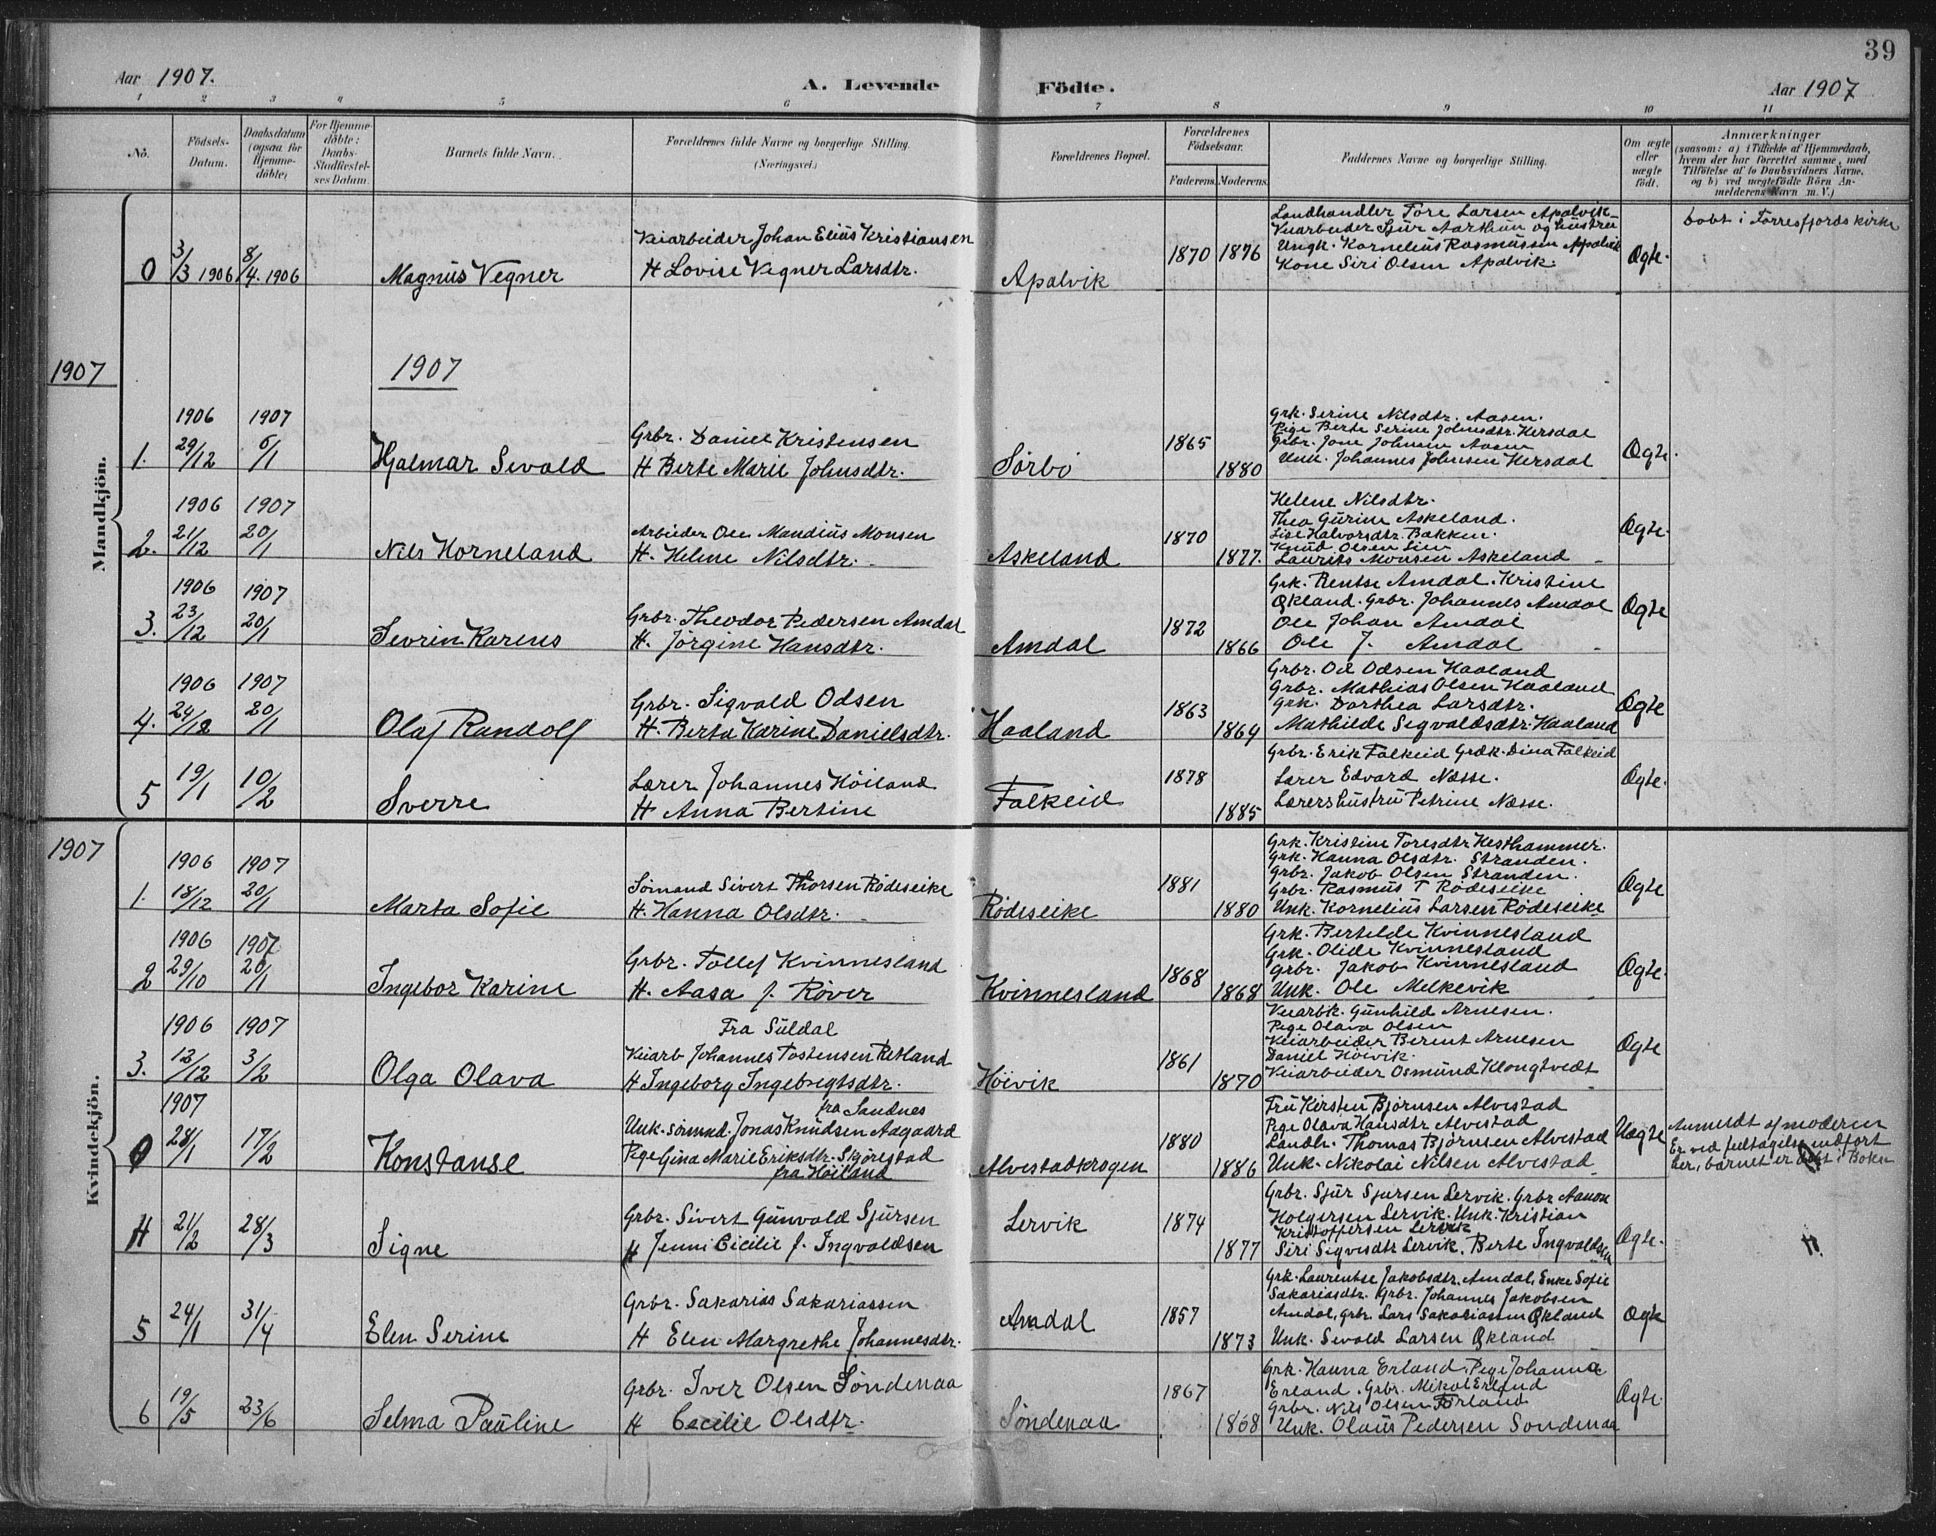 39
Aar 1907. A. Levende Födte. Aar 1907
1 2 3 4 5 6 7 8 9 10 11
No. Födsels-Datum. Daabsdatum (ogsaa for Hjemme-döbte) For Hjemme-döbte: Daabs-Stadfæstel-ses Datum. Barnets fulde Navn. Forældrenes fulde Navne og borgerlige Stilling. (Næringsvei.) Forældrenes Bopæl. Forældrenes Födselsaar. Faderens. Moderens. Faddernes Navne og borgerlige Stilling. Om ægte eller uægte födt. Anmærkninger (saasom: a) i Tilfælde af Hjemmedaab, hvem der har forrettet samme, med Tilföielse af to Daabsvidners Navne, og b) ved uægtefödte Börn An-melderens Navn m. V.)
Mandkjön.
0 3/3 1906 8/4. 1906 Magnus Vegner
Veiarbeider Johan Elius Kristiansen
H Lovise Vegner Larsdtr.
Apalvik 1870 1876
Landhandler Tore Larsen Apalvik
Veiarbeider Sjur Aarthun og hustru
Ungk. Kornelius Rasmussen Apalvik
Kone Siri Olsen Apalvik.
Ægte.
Døbt i Førresfjords kirke
1907
1907
1. 1906 29/12 1907 6/1 Hjalmar Sevald
Grbr. Daniel Kristensen
H Berte Marie Johnsdtr.
Sørbø 1865 1880
Grk. Serine Nilsdtr. Aasen.
Pige Berte Serine Johnsdtr. Hersdal
Grbr. Jone Johnsen Aasen
Unk. Johannes Johnsen Hersdal
Ægte.
2. 1906 21/12 1907 20/1 Nils Horneland
Arbeider Ole Mandius Monsen
H. Helene Nilsdtr.
Askeland 1870 1877.
Helene Nilsdtr.
Thea Gurine Askeland.
Lise Halvorsdtr. Bakken.
Knud Olsen Lien
Laurits Monsen Askeland
Ægte.
3. 1906 23/12 1907 20/1 Sevrin Karens
Grbr. Theodor Pedersen Amdal
H. Jørgine Hansdtr.
Amdal 1872 1866
Grk. Rentse Amdal. Kristine
Økland. Grbr. Johannes Amdal
Ole Johan Amdal
Ole J. Amdal
Ægte
4. 1906 24/12 1907 20/1 Olaf Randolf
Grbr. Sigvald Odsen
H. Berta Karine Danielsdtr.
Haaland 1863 1864
Grbr. Od Odsen Haaland
Grbr. Mathias Olsen Haaland
Grk. Dorthea Larsdtr.
Mathilde Segvaldsdtr. Haaland
Ægte
5 19/1 10/2 Sverre
Lærer Johannes Höiland
H Anna Bertine
Falkeid 1878 1885
Grbr. Erik Falkeid Grdk. Dina Falkeid
Lærer Edvard Næsse.
Lærershustru Petrine Næsse.
Ægte.
1907
Kvindekjön.
1. 1906 18/12 1907 20/1 Marta Sofie
Sömand Sivert Thorsen Rödeseike
H. Hanna Olsdtr.
Rödeseike 1881 1880
Grk. Kristine Toresdtr Hesthammer.
Grk. Hanna Olsdtr. Stranden.
Grbr. Jakob Olsen Stranden.
Grbr. Rasmus T Rödeseike
Unk. Kornelius Larsen Rödeseike
Ægte
2 1906 29/10 1907 20/1 Ingebor Karine
Grbr. Tollef Kvinnesland
H. Aasa f. Röver
Kvinnesland 1868 1868
Grk. Bertilde Kvinnesland
Grk. Olide Kvinnesland
Grbr. Jakob Kvinnesland
Unk. Ole Melkevik
Ægte.
3. 1906 12/12 1907 3/2 Olga Olava
Fra Suldal
Veiarb Johannes Tostensen Retland
H Ingeborg Ingebregtsdtr.
Höivik 1861 1870
Veiarbk. Gunhild Arnesen.
Pige Olava Olsen
Veiarbeider Berent Arnesen
Daniel Höivik.
Veiarbeider Osmund Klongtvedt
Ægte
0 1907 28/1 17/2 Konstanse
fra Sandnes
Unk. sömnd. Jonas Knudsen Aagaard
Pige Gina Marie Eriksdtr. Skjörestad
fra Höiland
Alvestadkrogen 1880 1886
Fru Kirsten Björnsen Alvestad
Pige Olava Hansdtr Alvestad
Landh. Thomas Björnsen Alvestad
Unk. Nikolai Nilsen Alvestad
Uægte
Anmeldt af moderen
Er ved feiltagelse indført
her, barnet er døbt i Bokn
4 21/2 28/3 Signe
Grbr. Sivert Gunvald Sjursen
H Jenni Cicilie f. Ingvaldsen
Lervik 1874 1877
Grbr. Sjur Sjursen Lervik. Grbr Aanon
Holgersen Lervik. Unk. Kristian
Kristoffersen Lervik
Siri Sigvesdtr Lervik. Berte Ingvaldsen
Ægte.
4.
5 24/1 31/4 Elen Serine
Grbr. Sakarias Sakariassen
H Elen Margrethe Johannesdtr.
Amdal 1857 1873
Grk. Laurentse Jakobsdtr. Amdal, Enke Sofie
Sakariasdtr. Grbr. Johannes Jakobsen
Amdal, Grbr. Lars Sakariassen Økland
Unk. Sevald Larsen Økland
Ægte
6 19/5 23/6 Selma Pauline
Grbr. Iver Olsen Söndenaa
H Cecilie Olsdtr.
Söndenaa 1867 1868
Grk. Hanna Erland. Pige Johanna
Erland. Grbr. Mikal Erland
Grbr. Nils Olsen
Unk. Olaus Pedersen Söndenaa
Ægte.